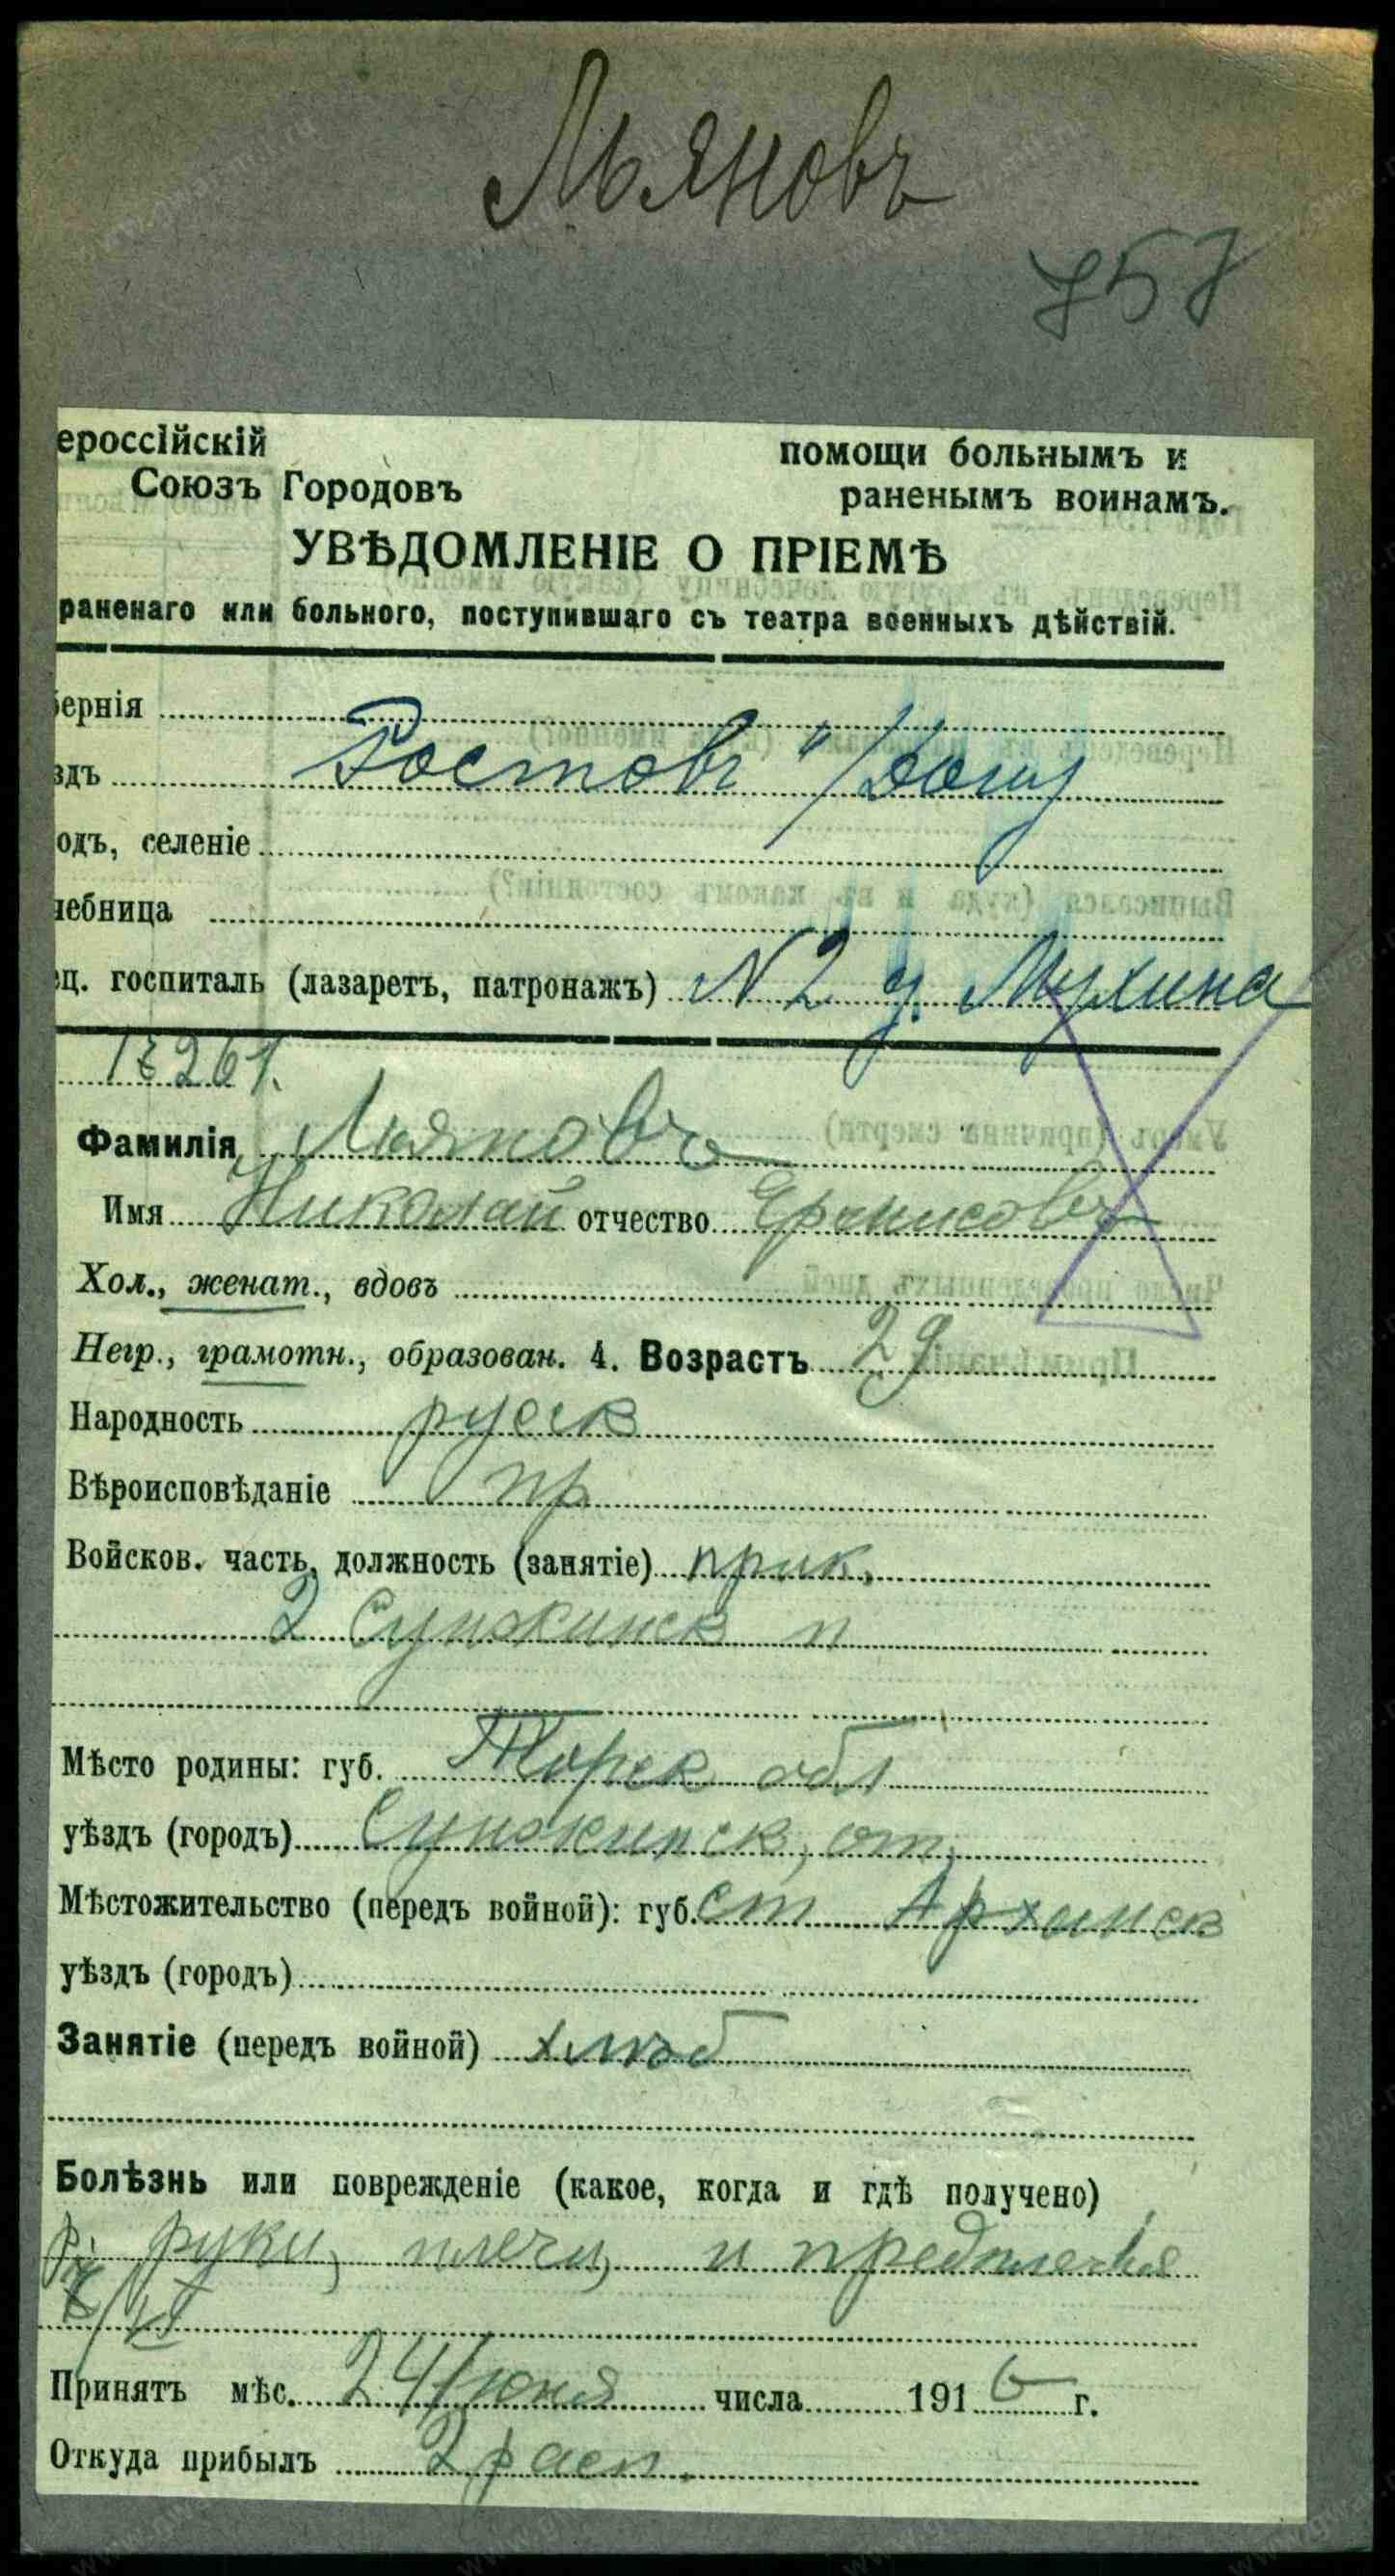 Льяновъ
757
ероссiйскiй
Союзъ Городовъ
помощи больнымъ и
раненымъ воинамъ.
УВѢДОМЛЕНІЕ О ПРІЕМѢ
раненаго или больного, поступившаго съ театра военныхъ дѣйствій.
бернія
здъ Ростовъ н/Дону
одъ, селеніе
чебница
ец. госпиталь (лазаретъ, патронажъ) N 2 у. Мухина
Фамилія Льяновъ
Имя Николай отчество
Хол., женат., вдовъ
Негр., грамотн., образован. 4. Возрастъ 29
Народность русск
Вѣроисповѣданіе пр
Войсков. часть, должность (занятіе) прик.
2 Сунжинск п
Мѣсто родины: губ. Терск обл
уѣздъ (городъ) Сунжинск, от,
Мѣстожительство (передъ войной): губ. ст
уѣздъ (городъ)
Занятіе (передъ войной) хлѣб
Болѣзнь или поврежденіе (какое, когда и гдѣ получено)
р. руки, плеча, и предплечья
Принятъ мѣс. 24 іюня числа 1916 г.
Откуда прибылъ 2 расп.